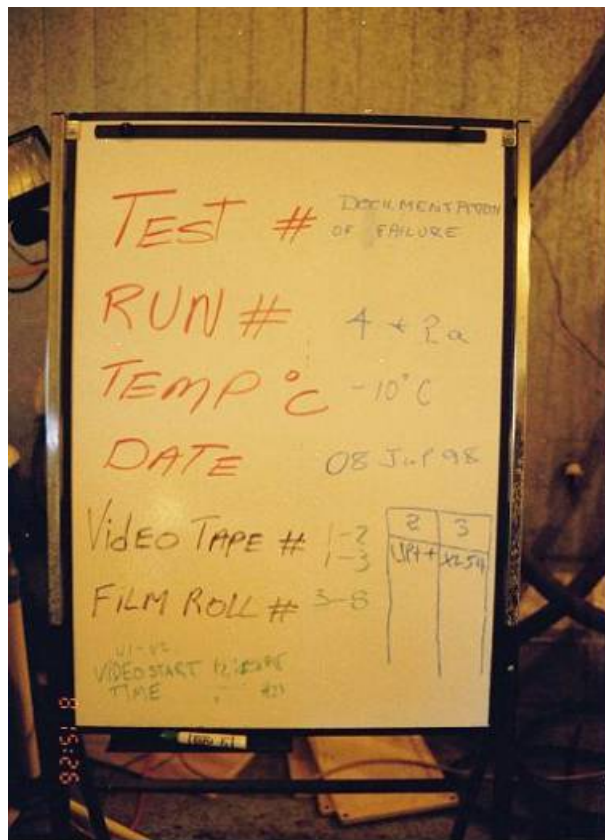 TEST # DOCUMENTATION
OF FAILURE
RUN # 4 + 2a
TEMP °C -10°C
DATE 08 Jul 98
VIDEO TAPE # 1-2
1-3
2 3
FILM ROLL # 3-8
VIDEO START
TIME
8 15:26